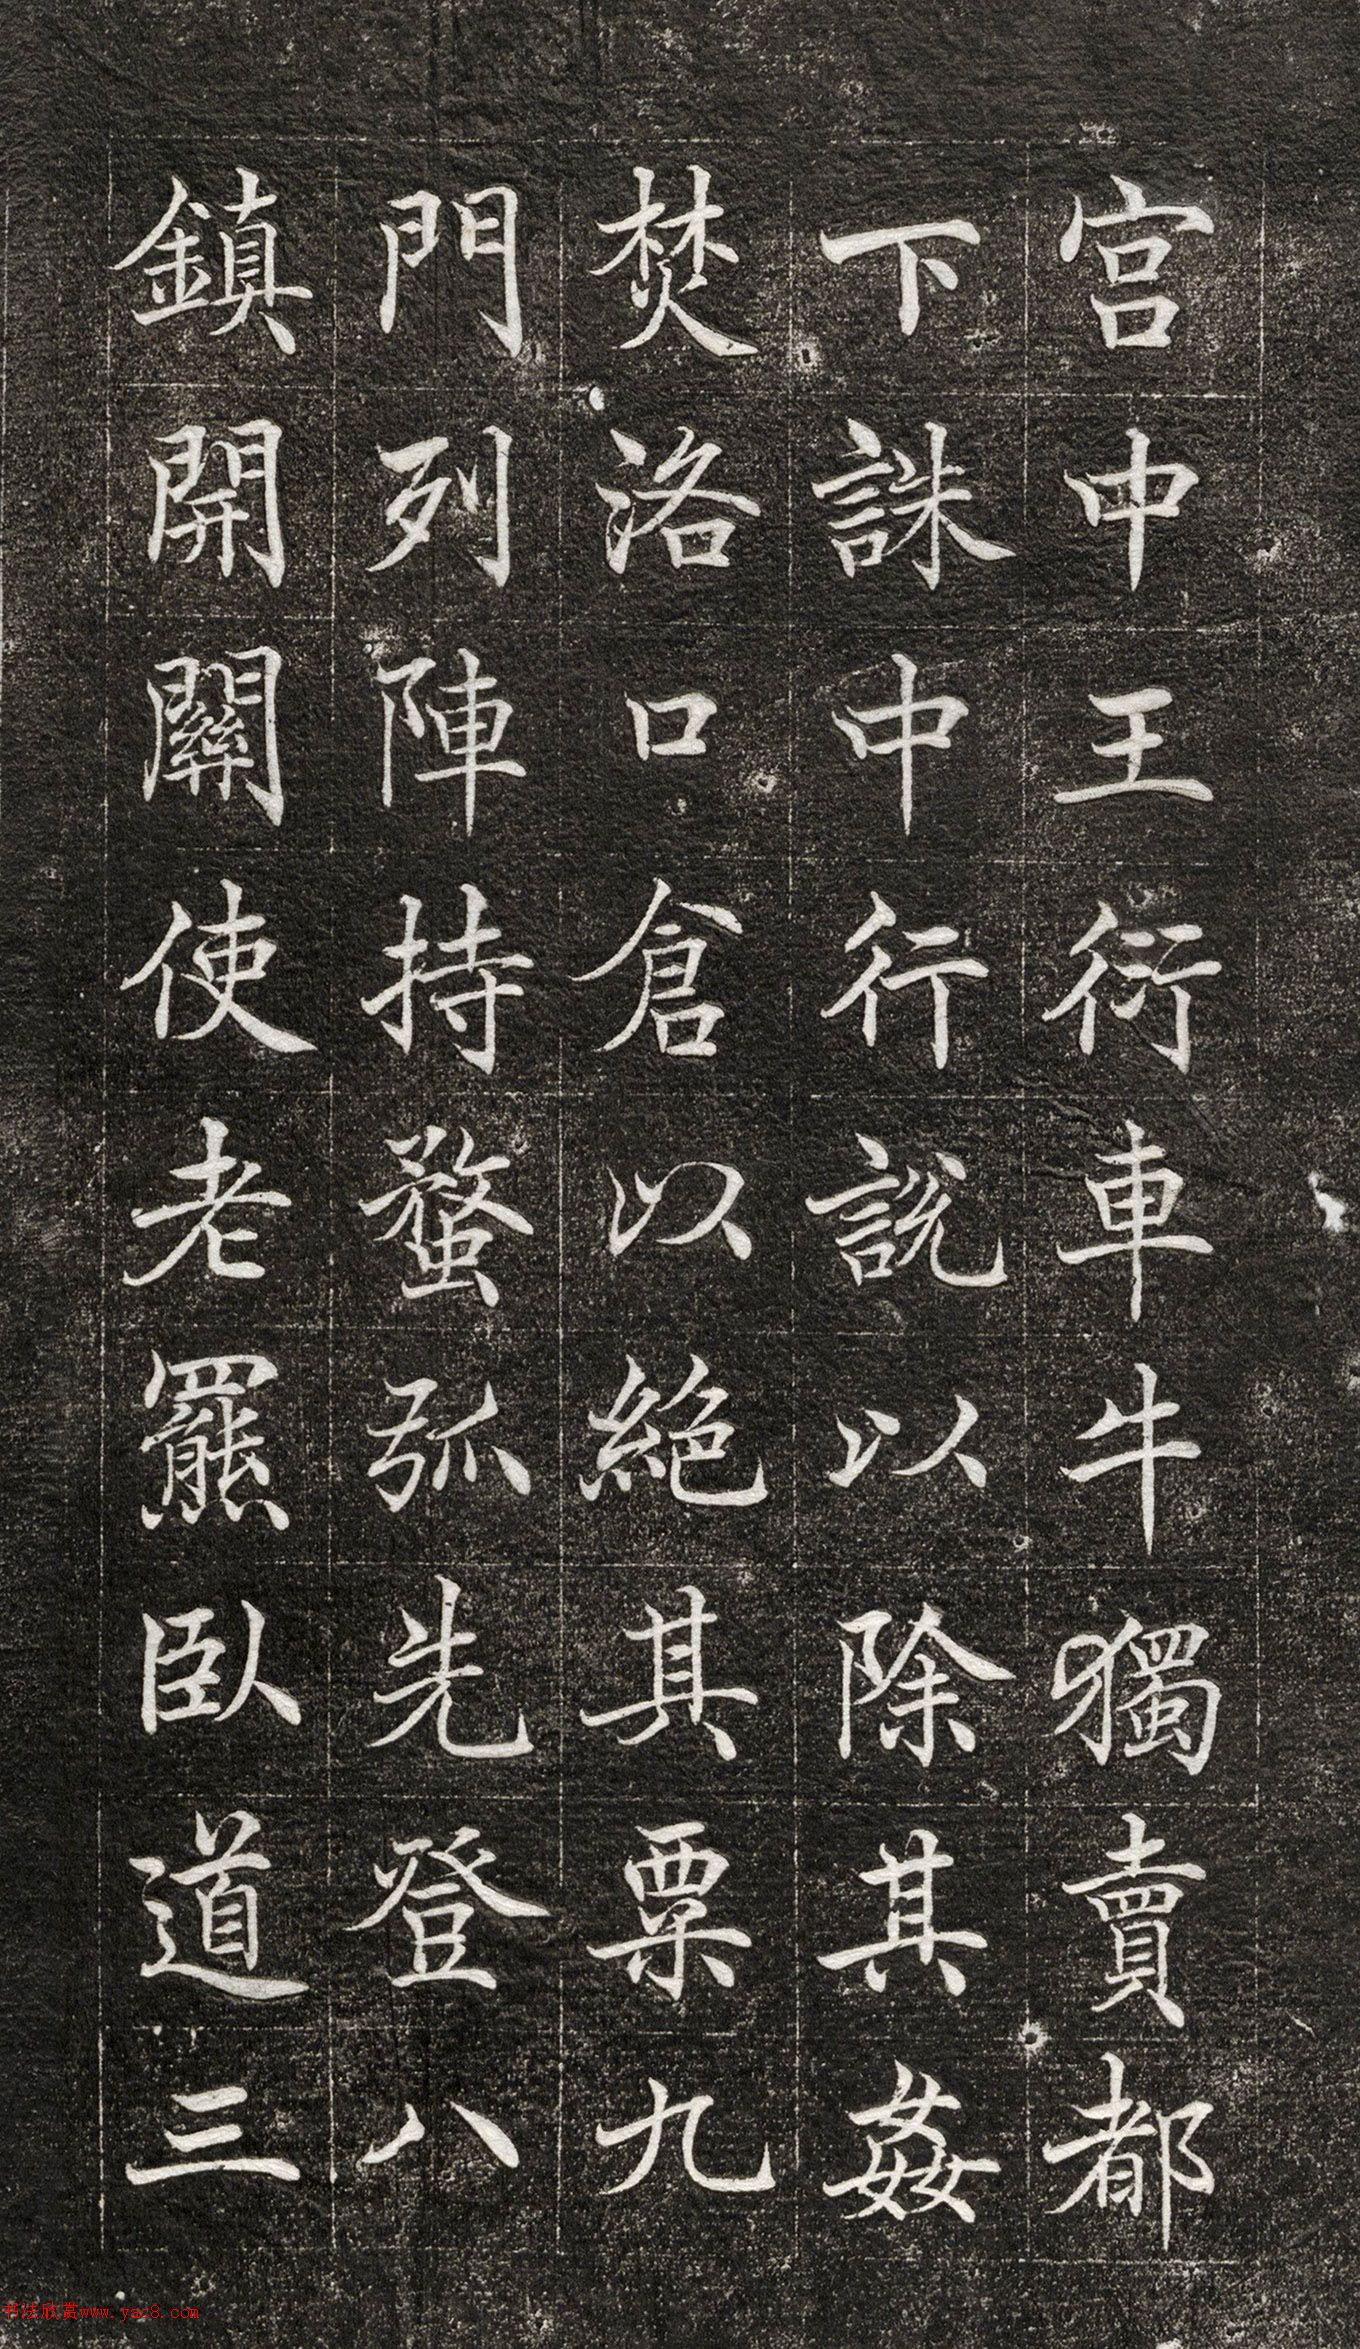 宫中王衍車牛獨賣都
下誅中行說以除其姦
焚洛口倉以絶其粟九
門列陣持蝥弧先登八
鎮開關使老羆臥道三
书法欣赏www.yac8.com